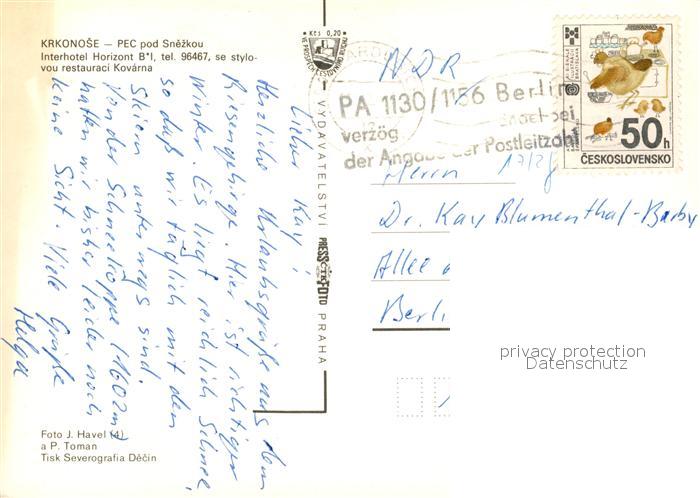 KRKONOŠE — PEC pod Sněžkou
Interhotel Horizont B*I, tel. 96467, se stylo-
vou restaurací Kovárna
Lieber Kay!
Herzliche Urlaubsgrüße aus dem
Riesengebirge. Hier ist richtiger
Winter. Es liegt reichlich Schnee,
so daß wir täglich mit den
Skiern unterwegs sind.
Von der Schneekoppe (1602m)
hatten wir bisher leider noch
keine Sicht. Viele Grüße
Helga
Foto J. Havel (4)
a P. Toman
Tisk Severografia Děčín
Kčs 0,20
VYDAVATELSTVÍ PRESSFOTO PRAHA
ČTK
NDR
PA 1130/1156 Berlin
verzög
bei
der Angabe der Postleitzahl
50h
ČESKOSLOVENSKO
Herrn
Dr. Kay Blumenthal-Barby
Allee
Berli
privacy protection
Datenschutz